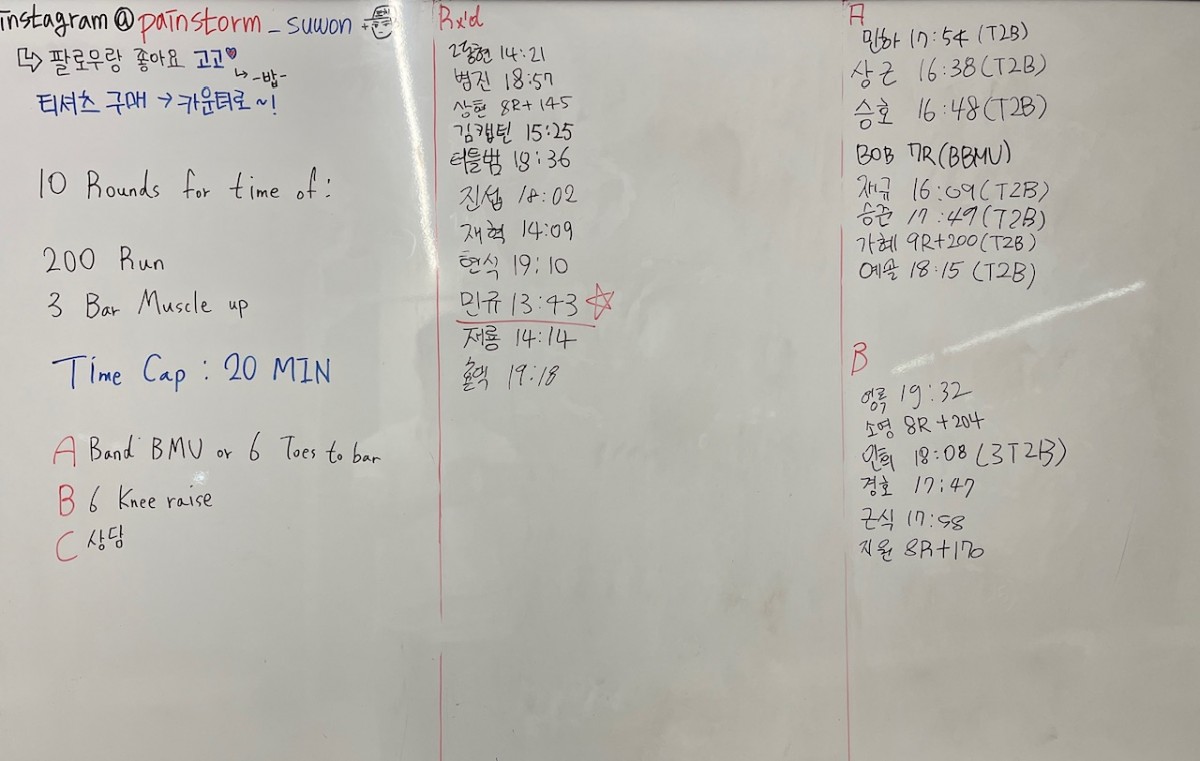 instagram@painstorm_suwon
팔로우랑 좋아요 고고♥
↳ -밥-
티셔츠 구매 → 카운터로~!
10 Rounds for time of:
200 Run
3 Bar Muscle up
Time Cap : 20 MIN
A Band BMU or 6 Toes to bar
B 6 Knee raise
C 상담
Rx'd
14:21
병진 18:57
상현 8R+145
김캡틴 15:25
터틀범 18:36
진섭 18:02
재혁 14:09
현식 19:10
민규 13:43 ☆
재룡 14:14
19:18
A
민하 17:54 (T2B)
상근 16:38 (T2B)
승호 16:48 (T2B)
BOB 7R (BBMU)
재규 16:09 (T2B)
승준 17:49 (T2B)
가혜 9R+200 (T2B)
예솔 18:15 (T2B)
B
영록 19:32
소영 8R+204
18:08 (3T2B)
경호 17:47
근식 17:58
지원 8R+170